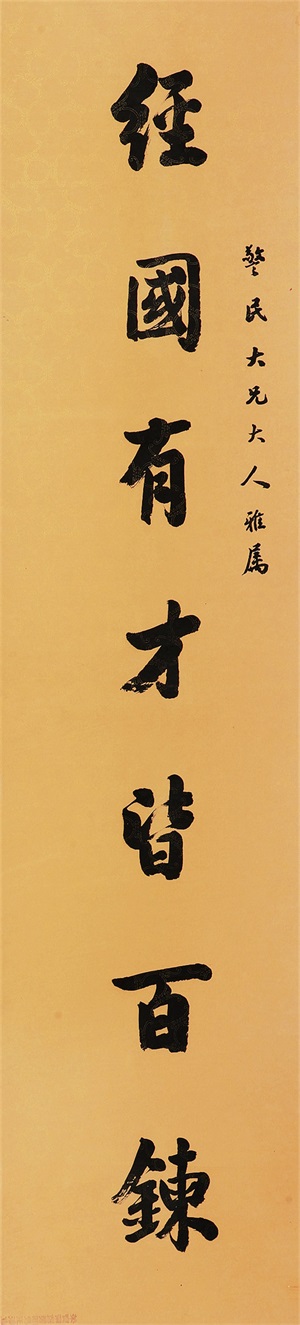 警民大兄大人雅属
經國有才皆百鍊